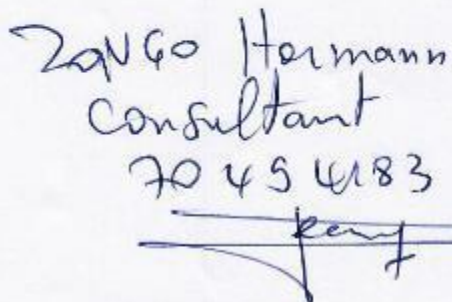 ZONGO Hermann
Consultant
70 45 41 83